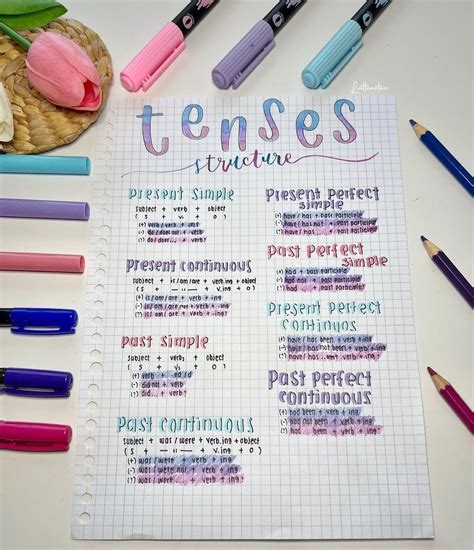 tenses
structure
Present Simple
subject + verb + object
(S + v + O)
(+) verb / verb + s
(-) do / does not + verb
(?) do / does... + verb?
Present continuous
subject + is / am / are + verb.ing + object
(+) is / am / are + verb + ing
(-) is / am / are + not + verb + ing
(?) is / am / are... + verb + ing?
Past Simple
subject + verb₂ + object
(S + v₂ + O)
(+) verb + ed / d
(-) did not + verb
(?) did... + verb?
Past continuous
subject + was / were + verb.ing + object
(S + — + v.ing + O)
(+) was / were + verb + ing
(-) was / were not + verb + ing
(?) was / were... + verb + ing?
Present Perfect
Simple
(+) have / has + past participle
(-) have / has not + past participle
(?) have / has... + past participle?
Past Perfect
Simple
(+) had + past participle
(-) had not + past participle
(?) had... + past participle?
Present Perfect
continuos
(+) have / has been + verb + ing
(-) have / has not been + verb + ing
(?) have / has... been + verb + ing?
Past Perfect
continuous
(+) had been + verb + ing
(-) had not been + verb + ing
(?) had... been + verb + ing?